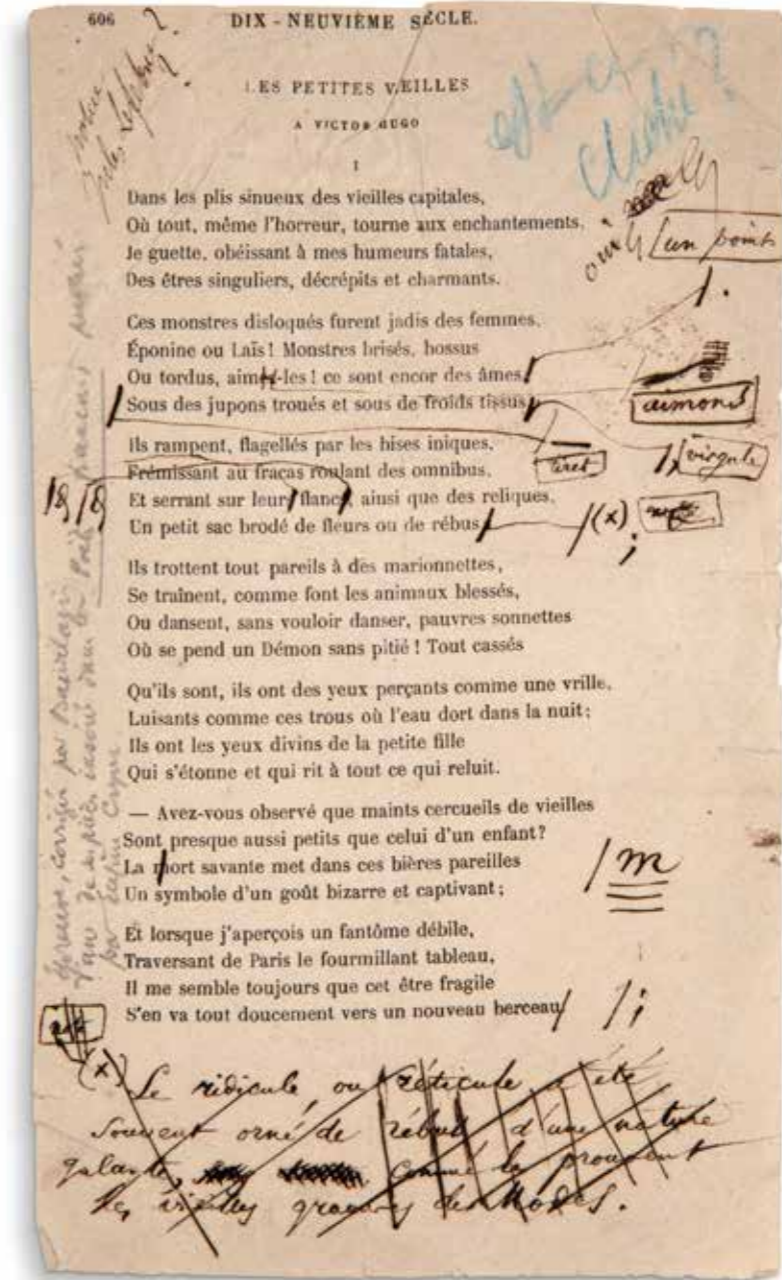 606 DIX-NEUVIÈME SÈCLE.
LES PETITES VEILLES
A VICTOR HUGO
I
Dans les plis sinueux des vieilles capitales,
Où tout, même l'horreur, tourne aux enchantements,
Je guette, obéissant à mes humeurs fatales,
Des êtres singuliers, décrépits et charmants.
oui
un point
Ces monstres disloqués furent jadis des femmes,
Éponine ou Laïs! Monstres brisés, bossus
Ou tordus, aimez-les! ce sont encor des âmes,
Sous des jupons troués et sous de froids tissus,
.
aimons
Ils rampent, flagellés par les bises iniques,
Frémissant au fracas roulant des omnibus,
Et serrant sur leurs flancs, ainsi que des reliques,
Un petit sac brodé de fleurs ou de rébus,
tiret
, virgule
(x)
;
Ils trottent tout pareils à des marionnettes,
Se traînent, comme font les animaux blessés,
Ou dansent, sans vouloir danser, pauvres sonnettes
Où se pend un Démon sans pitié! Tout cassés
Qu'ils sont, ils ont des yeux perçants comme une vrille,
Luisants comme ces trous où l'eau dort dans la nuit;
Ils ont les yeux divins de la petite fille
Qui s'étonne et qui rit à tout ce qui reluit.
— Avez-vous observé que maints cercueils de vieilles
Sont presque aussi petits que celui d'un enfant?
La mort savante met dans ces bières pareilles
Un symbole d'un goût bizarre et captivant;
m
Et lorsque j'aperçois un fantôme débile,
Traversant de Paris le fourmillant tableau,
Il me semble toujours que cet être fragile
S'en va tout doucement vers un nouveau berceau
;
(x) Le ridicule, ou réticule, a été
souvent orné de rébus d'une nature
galante, comme le prouvent
les vieilles gravures de Modes.
Épreuve, corrigée par Baudelaire
d'une de ses pièces insérée dans les Poètes français
par Eugène Crépet